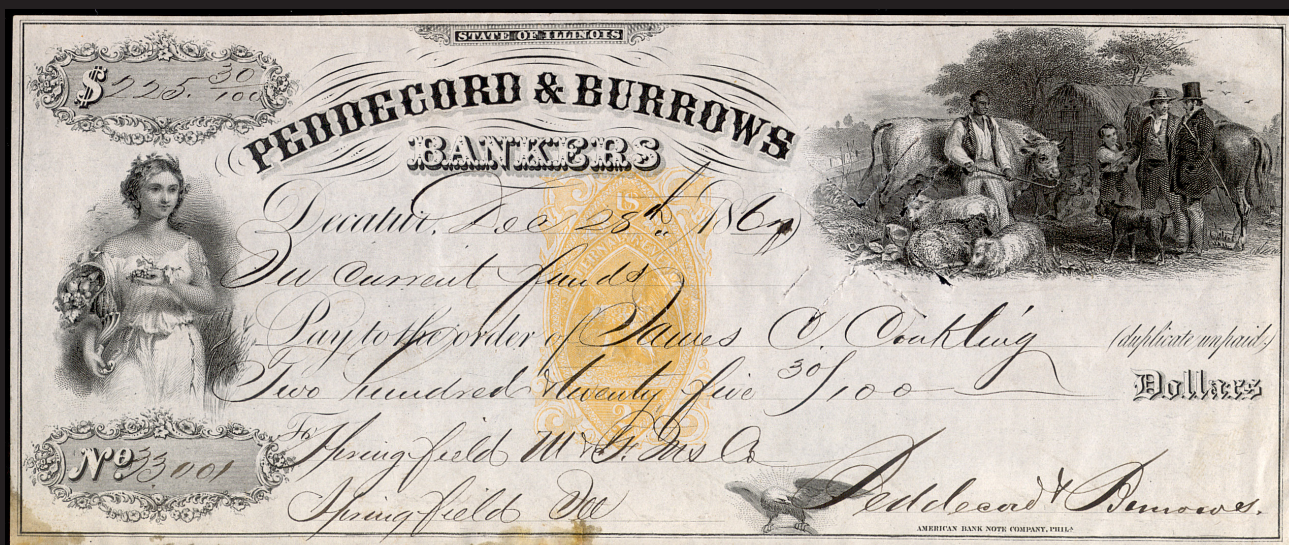 STATE OF ILLINOIS
$ 225. 30/100
PEDDECORD & BURROWS
BANKERS
Decatur, Dec 28th 186
In current funds
Pay to the order of James C. Conkling (duplicate unpaid)
Two hundred & twenty five 30/100 Dollars
No 33,001
For Springfield M & F. Ins Co
Springfield Ill
Peddecord & Burrows.
AMERICAN BANK NOTE COMPANY, PHILA